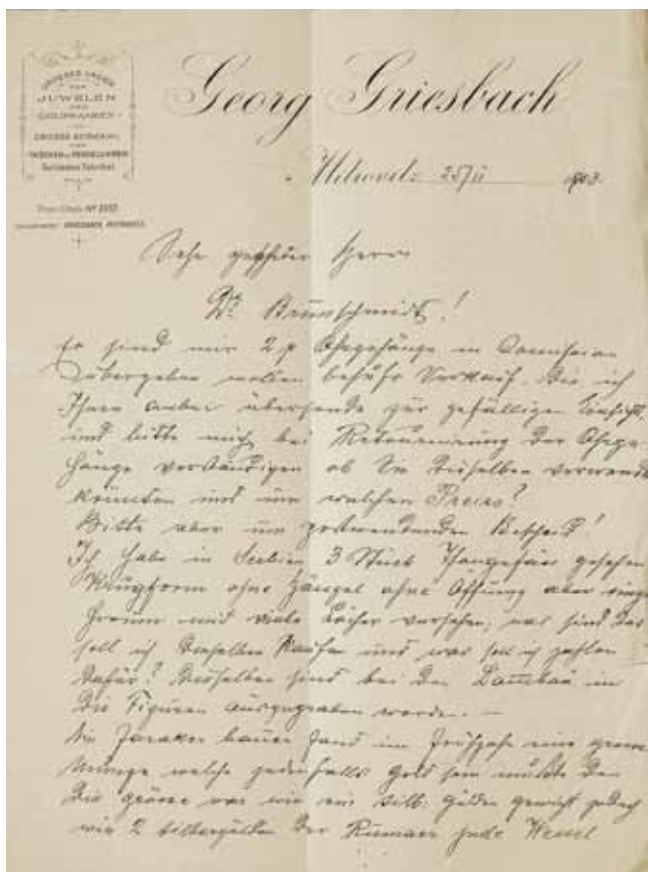 GROSSES LAGER
VON
JUWELEN
UND
GOLDWAAREN
GROSSE AUSWAHL
VON
TASCHEN u. PENDELUHREN
Georg Griesbach
Mitrovitz 25/II 1903.
Sehr geehrter Herr
Dr. Brunschmidt!
Es sind mir 2 p Ohrgehänge in
übergeben worden behufs Verkauf. die ich
Ihnen anbei übersende zur gefälligen Einsicht,
und bitte mich bei Retournirung der Ohrge-
hänge verständigen ob Sie dieselben verwenden
könnten und um welchen Preis?
Bitte aber um postwendenden Bescheid!
Ich habe in Serbien 3 Stück Thongefäs gesehen
Krugform ohne Henkel ohne Öffnung aber
herum mit viele Löcher versehen; was sind das
soll ich dieselben kaufen und was soll ich zahlen
dafür? dieselben sind bei der in
die Figuren ausgegraben worden. —
Ein bauer fand im Frühjahr eine
Münze welche jedenfalls Gold sein mußte den
die grösse war wie ein silb. gulden gewicht jedoch
wie 2 silbergulden der